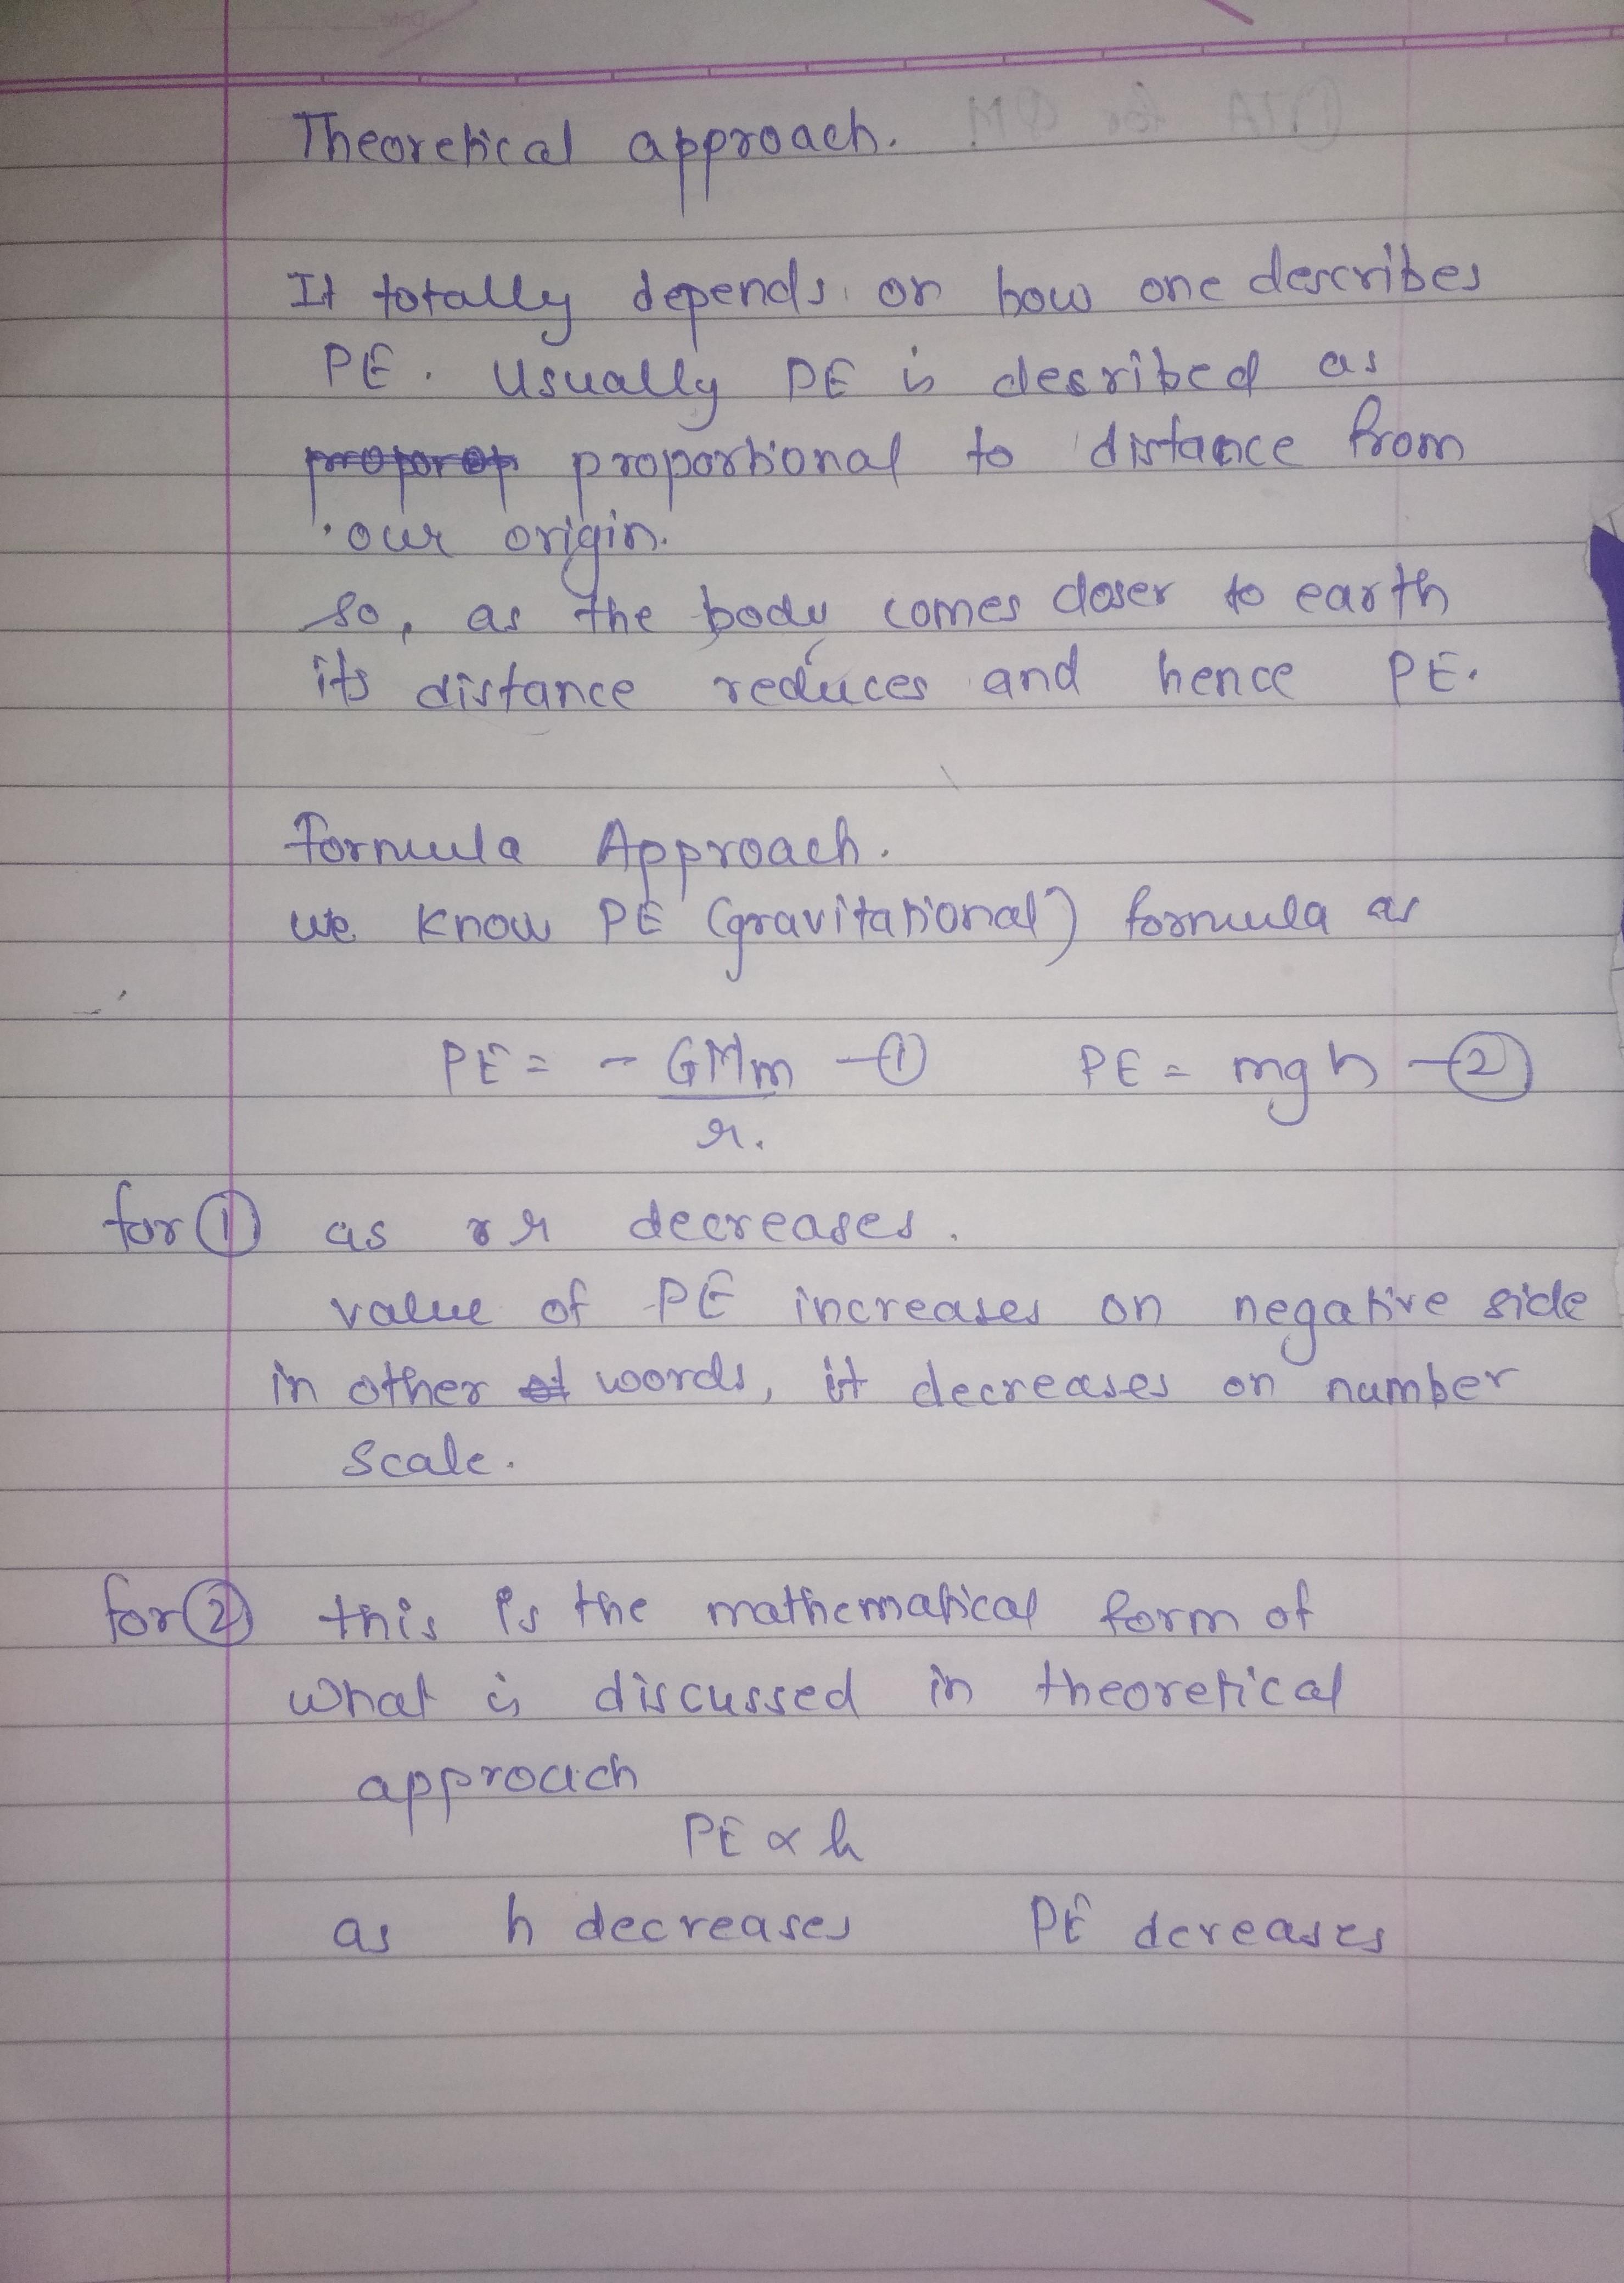 Theoretical approach.
It totally depends on how one describes
PE. Usually PE is desribed as
proportional to distance from
our origin.
so, as the body comes closer to earth
its distance reduces and hence PE.
Formula Approach.
we know PE (gravitational) formula as
PE = - GMm — ① PE = mgh — ②
r.
for ① as r decreases.
value of PE increases on negative side
in other words, it decreases on number
scale.
for ② this is the mathematical form of
what is discussed in theoretical
approach
PE ∝ h
as h decreases PE dcreases